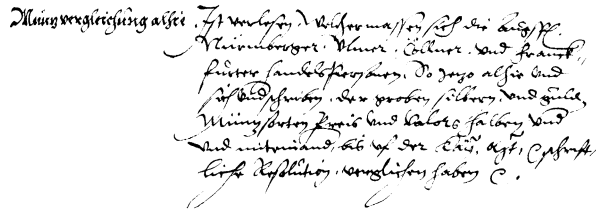 Müntz vergleichung alhie. Ist verlesen, Welchermassen sich die Augsp.
Nürmberger, Ulmer, Cöllner, und Franck-
furter handelspersonen, So jezo alhie und
sich underschriben, der groben silbern, und guld.
Müntzsorten Preis und Valors halben und
und miteinand, bis uf der Käy. Mt. schrifft-
liche Resolution, verglichen haben